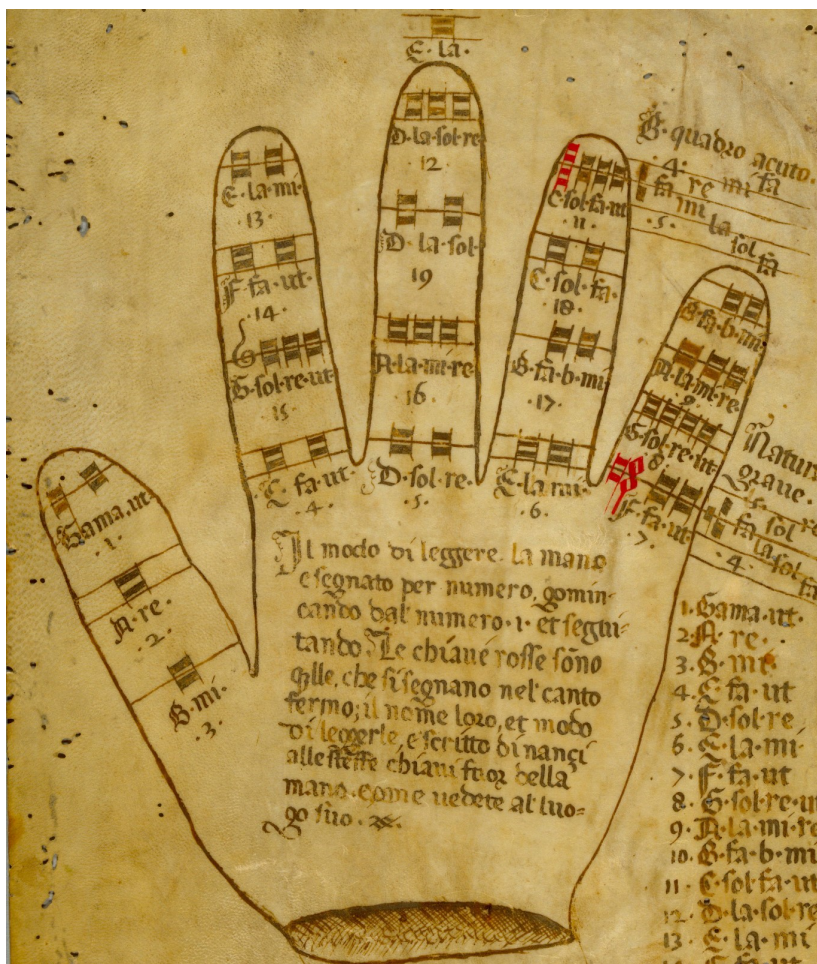 E·la·
D·la·sol·re
12
D·la·sol·
19
A·la·mi·re
16
D·sol·re·
·5·
E·la·mi·
·13·
F·fa·ut·
·14·
G·sol·re·ut
·15·
C·fa·ut
·4·
C·sol·fa·ut
11
C·sol·fa·
·18·
B·fa·b·mi
·17·
E·la·mi·
·6·
B·quadro acuto·
·4· re mi fa
fa mi la sol fa
·5·
B·fa·b·mi·
A·la·mi·re·
·9·
G·sol·re·ut
·8·
F·fa·ut
·7·
Natur
grave·
·5· re
fa sol
fa la sol fa
·4·
Gama·ut·
·1·
A·re·
·2·
B·mi·
·3·
Il modo di leggere. la mano
e segnato per numero, gomin-
cando dal numero·1· et segui-
tando. Le chiave rosse sono
qlle, che si segnano nel canto
fermo; il nome loro, et modo
di leggerle, e scritto di nanci
alle stesse chiavi fuor della
mano· come vedete al luo=
go suo·
1·Gama·ut·
2·A·re·
3·B·mi
4·C·fa·ut
5·D·sol·re
6·E·la·mi·
7·F·fa·ut
8·G·sol·re·u
9·A·la·mi·re
10·B·fa·b·mi
11·C·sol·fa·ut
12·D·la·sol·re
13·E·la·mi·
14 F·fa·ut